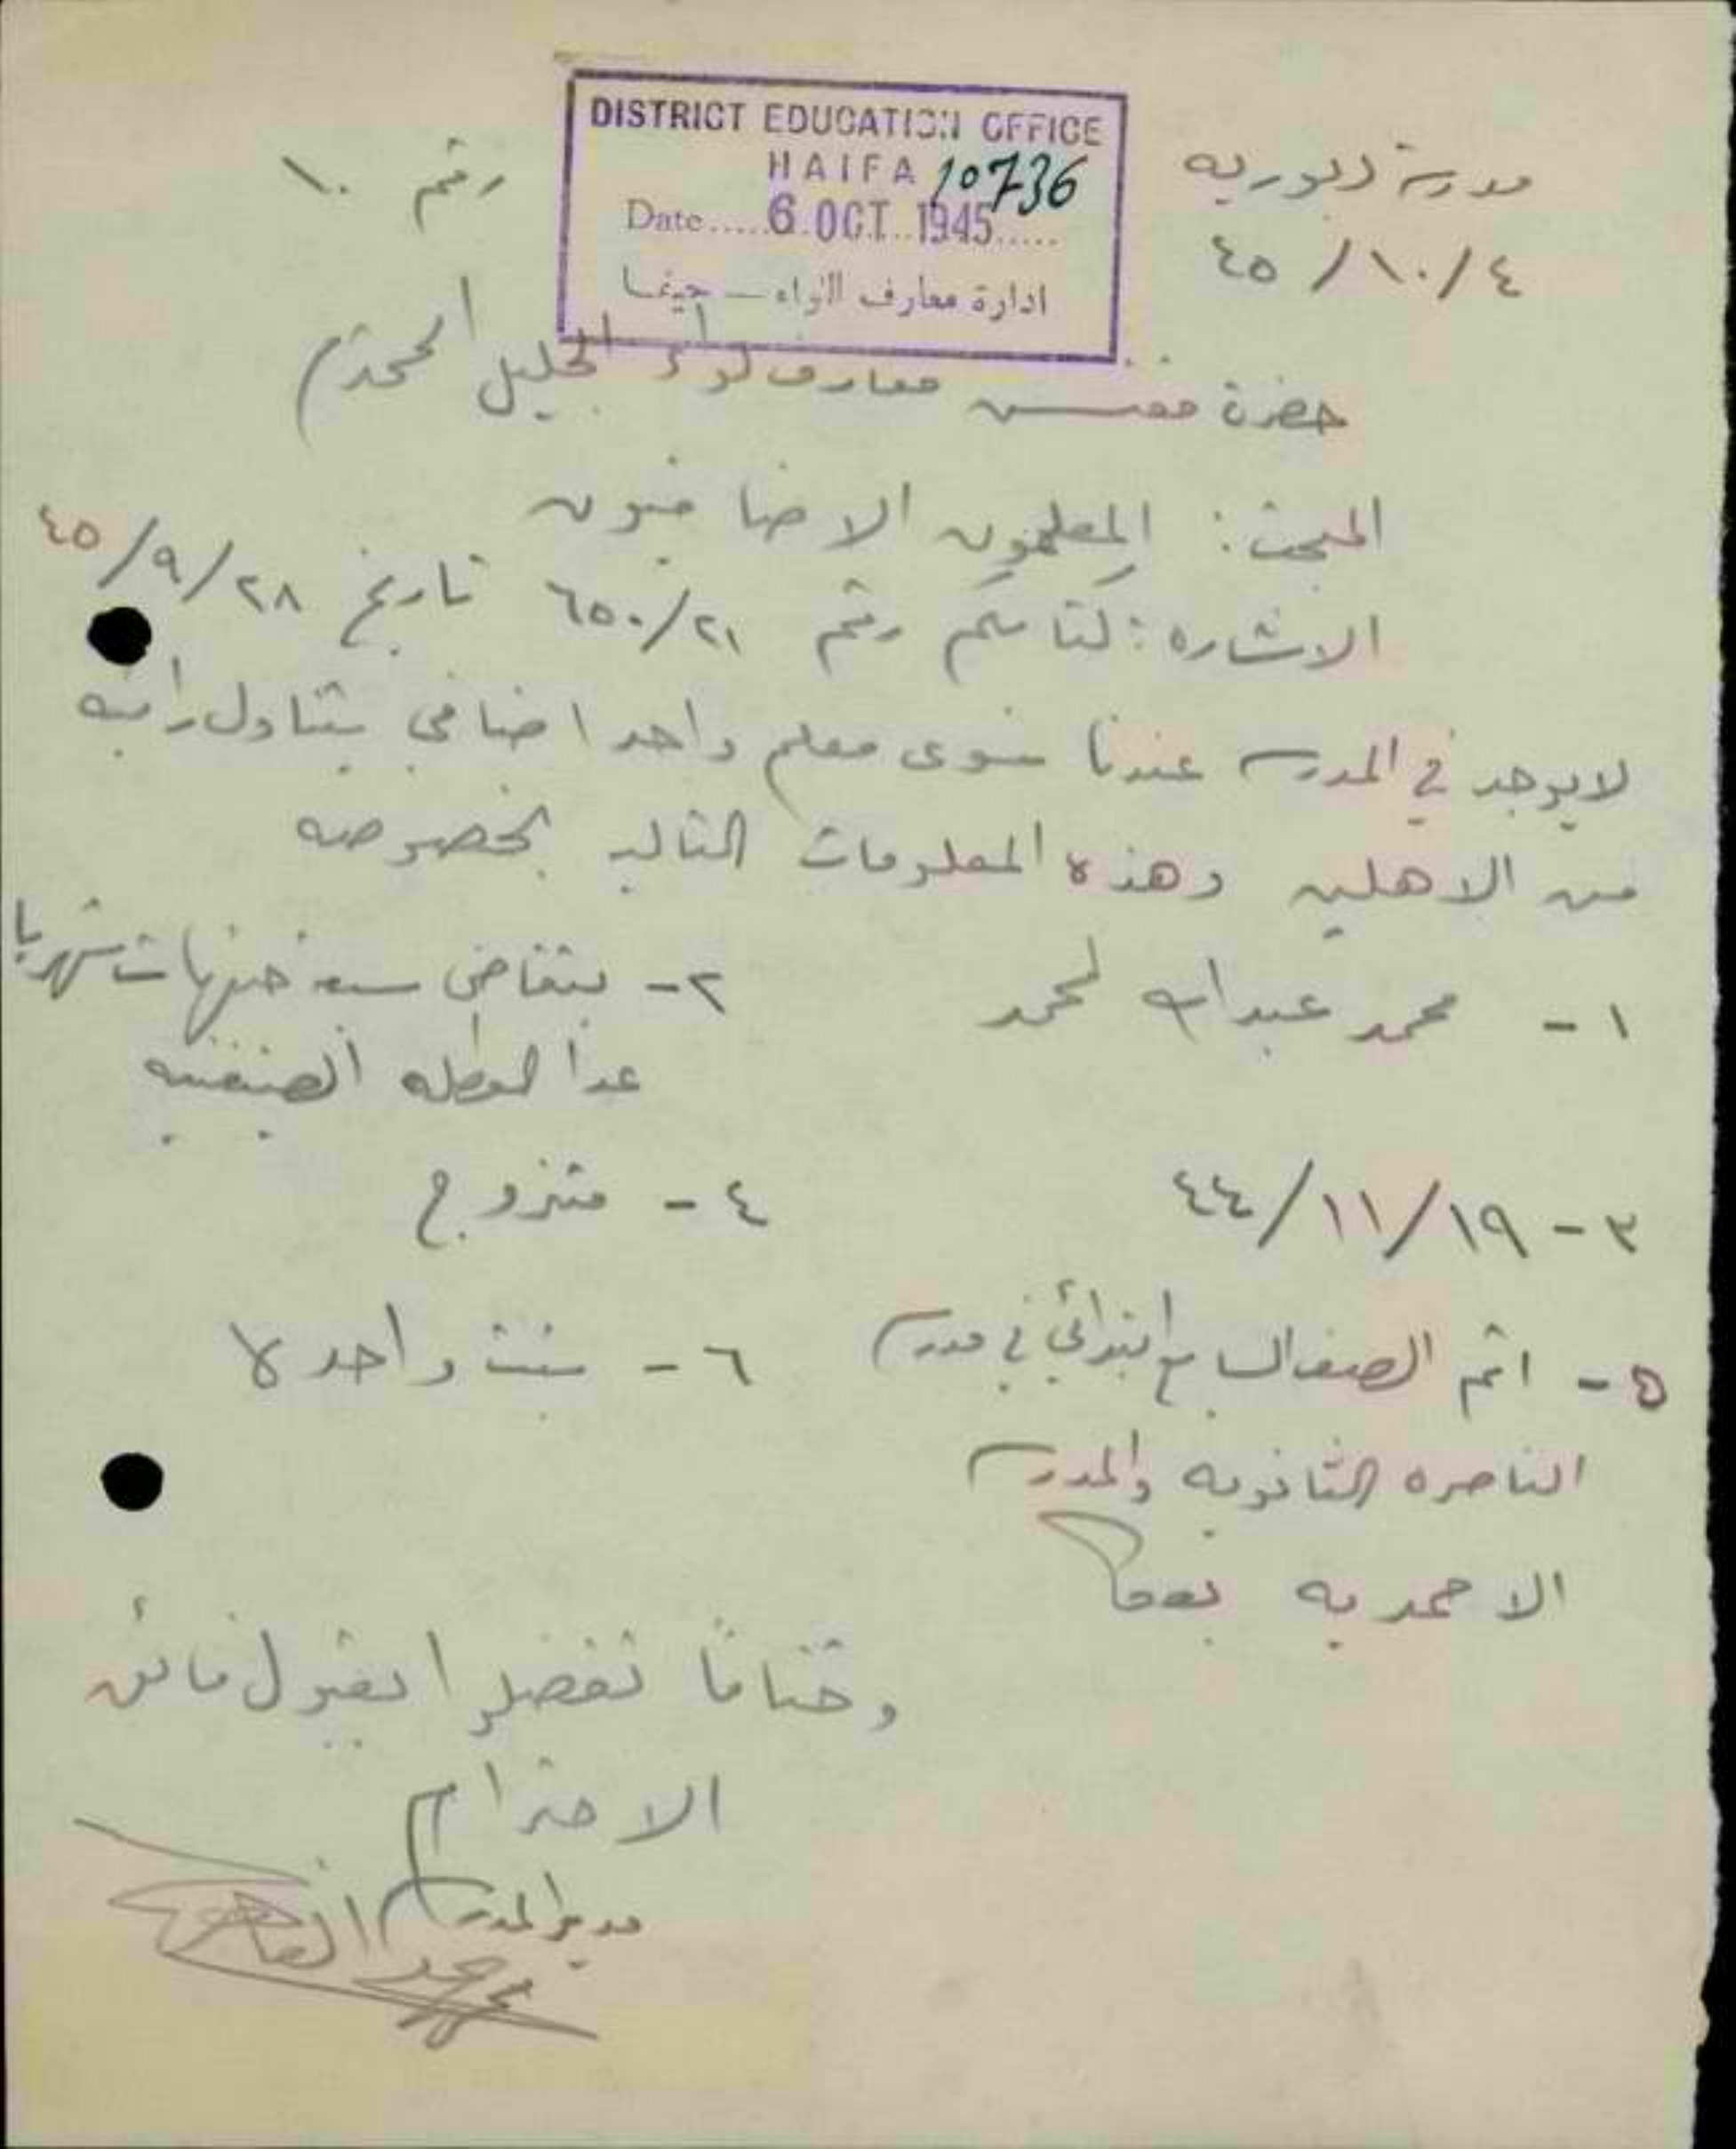 DISTRICT EDUCATION OFFICE
HAIFA 10736
Date.....6 OCT 1945.....
ادارة معارف اللواء — حيفا
مدرسة دبورية
رقم ١٠
٤/١٠/٤٥
حضرة مفتش معارف لواء الجليل المحترم
المبحث: المعلمون الاضافيون
الاشاره: كتابكم رقم ٦٥٠/٢١ تاريخ ٢٨/٩/٤٥
لا يوجد في المدرسة عندنا سوى معلم واحد اضافي يتناول راتبه
من الاهلين وهذه المعلومات التاليه بخصوصه
١- محمد عبدالله لمحمد
٢- يتقاضى سبعة جنيهات شهريا
عدا العطله الصيفيه
٣- ١٩/١١/٤٤
٤- متزوج
٥- اتم الصف السابع ابتدائي في مدرسة
الناصره الثانويه والمدرسة
الاحمديه بعكا
٦- سنة واحدة
وختاما تفضلوا بقبول فائق
الاحترام
مدير المدرسة